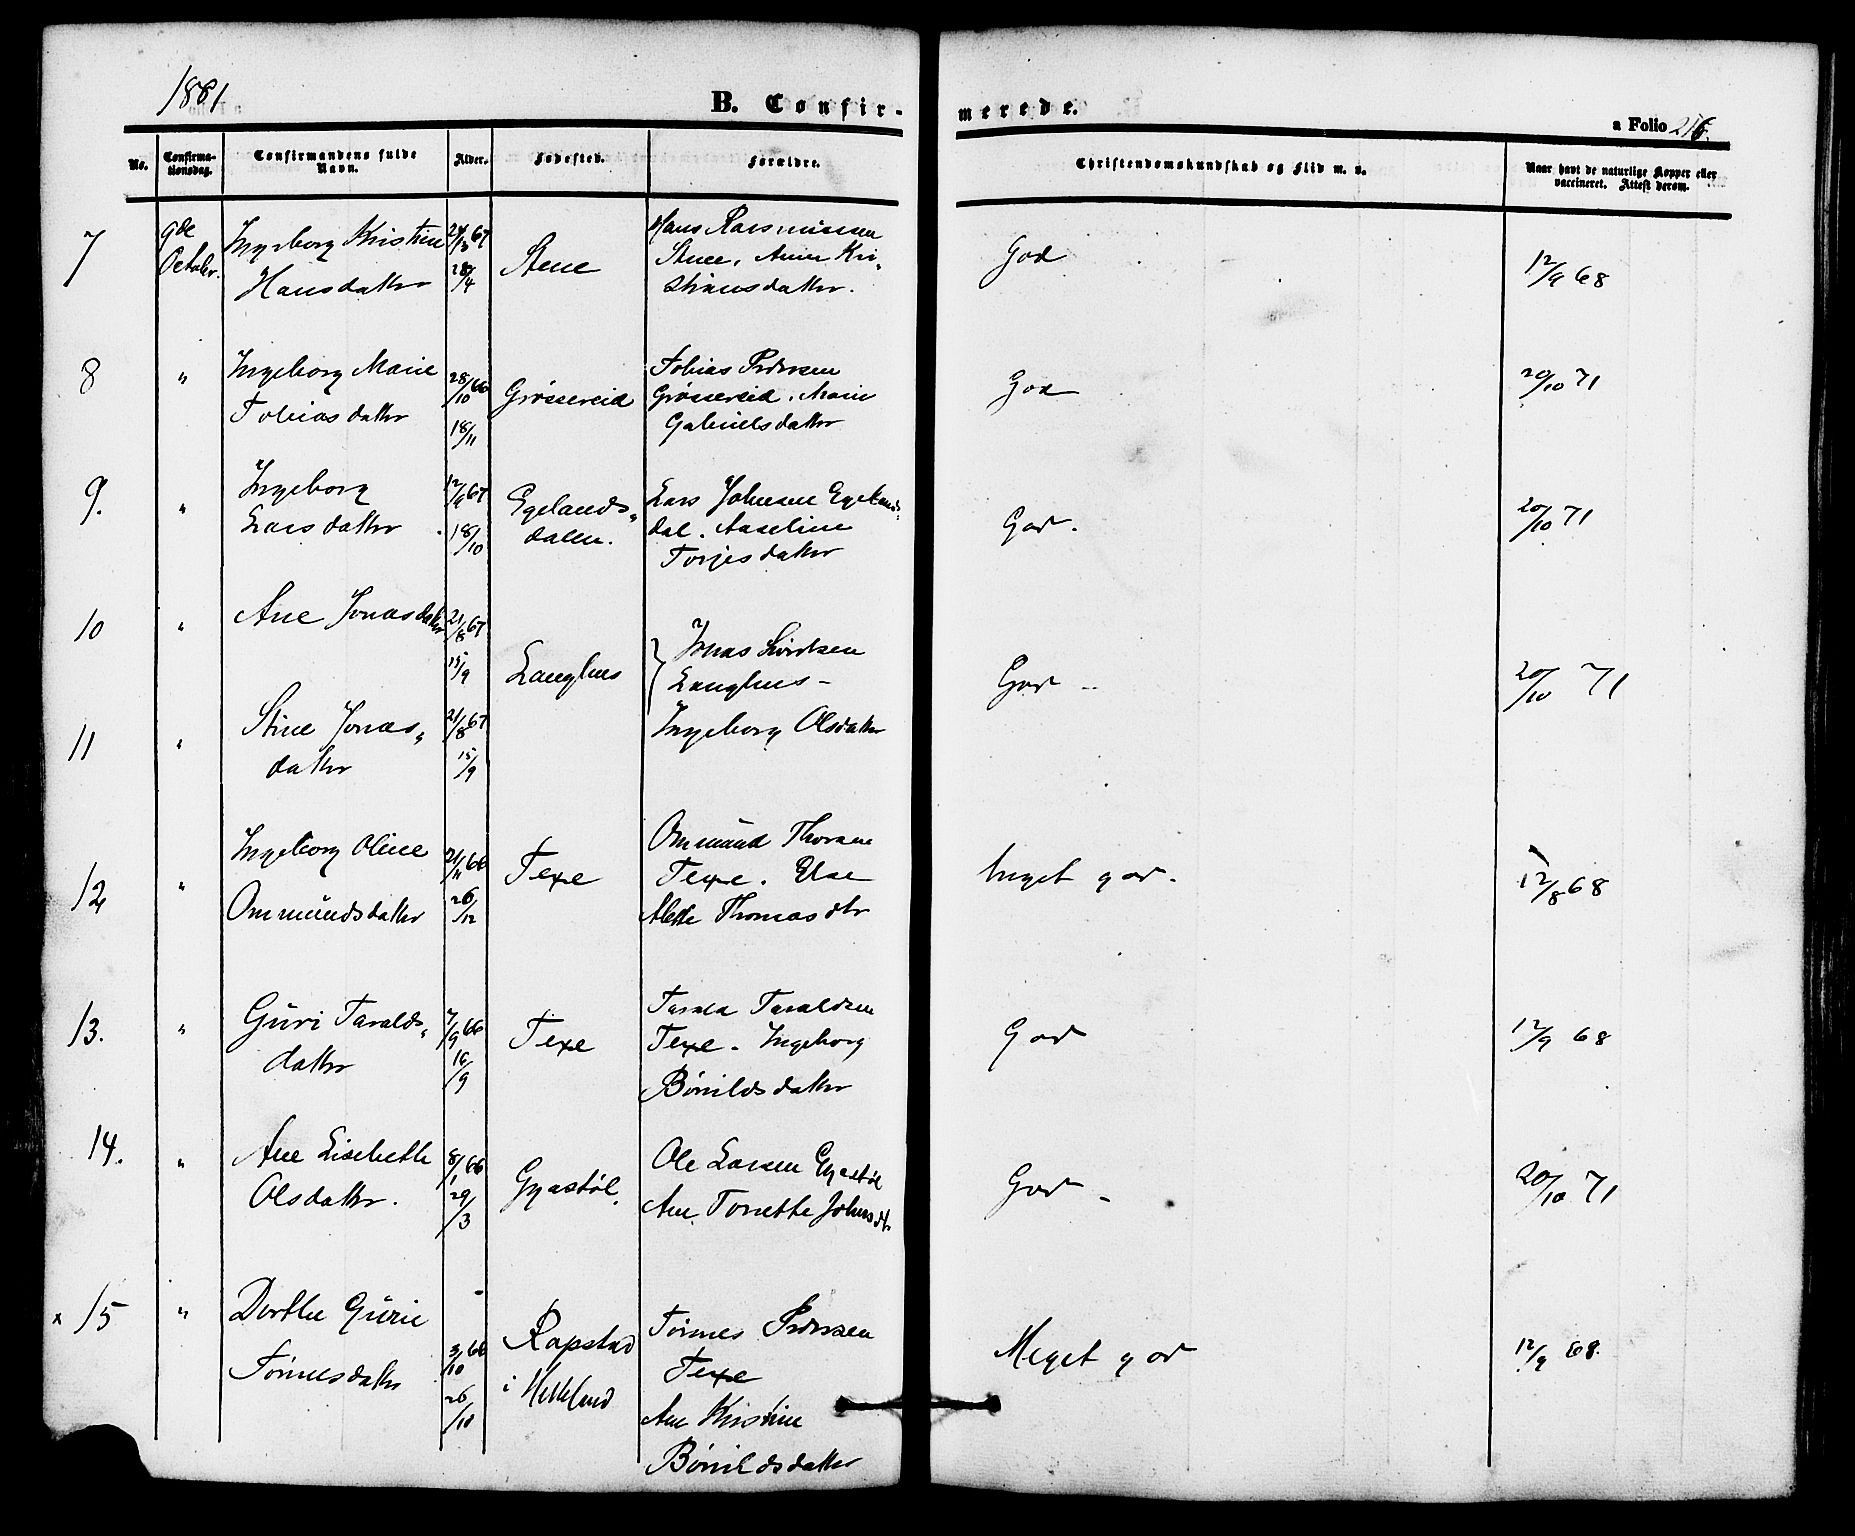 1881
B. Confirmerede.
a Folio 216.
No.
Confirma-
tionsdag.
Confirmandens fulde
Navn.
Alder.
Fødested.
Forældre.
Christendomskundskab og Flid m. v.
Naar havt de naturlige Kopper eller
vaccineret. Attest derom.
7
9de
October.
Ingeborg Kristine
Hansdatter
67
28/4
Stene
Hans Rasmussen
Stene, Anne Kri„
stiansdatter.
God
12/9 68
8
"
Ingeborg Marie
Tobiasdatter
28/10 66
18/11
Grøssereid
Tobias Pedersen
Grøssereid, Marie
Gabrielsdatter
God
20/10 71
9.
"
Ingeborg
Larsdatter
12/9 67
18/10
Egelands„
dalen.
Lars Johnsen Egelands„
dal. Aaseline
Torjesdatter
God.
20/10 71
10
"
Ane Jonasdatter
21/8 67
15/9
Langhus
Jonas Sivertsen
Langhus -
God -
20/10 71
11
"
Stine Jonas„
datter
21/8 67
15/9
Ingeborg Olsdatter
12
"
Ingeborg Oline
Ommundsdatter
21/11 66
26/12
Texe
Ommund Thorsen
Texe. Else
Alette Thomasdtr
Meget god.
12/8 68
13.
"
Guri Taralds„
datter
7/9 66
16/9
Texe
Tarald Taraldsen
Texe. Ingeborg
Bønildsdatter
God
12/9 68
14.
"
Ane Lisebeth
Olsdatter.
8/1 66
29/3
Gyastøl.
Ole Larsen Gyastøl
Ane Tonette Johnsdtr
God -
20/10 71
x 15
"
Dorthe Gurie
Tønnesdatter
3/10 66
26/10
Rapstad
i Helleland
Tønnes Pedersen
Texe
Ane Kristine
Bønildsdatter
Meget god
12/9 68.